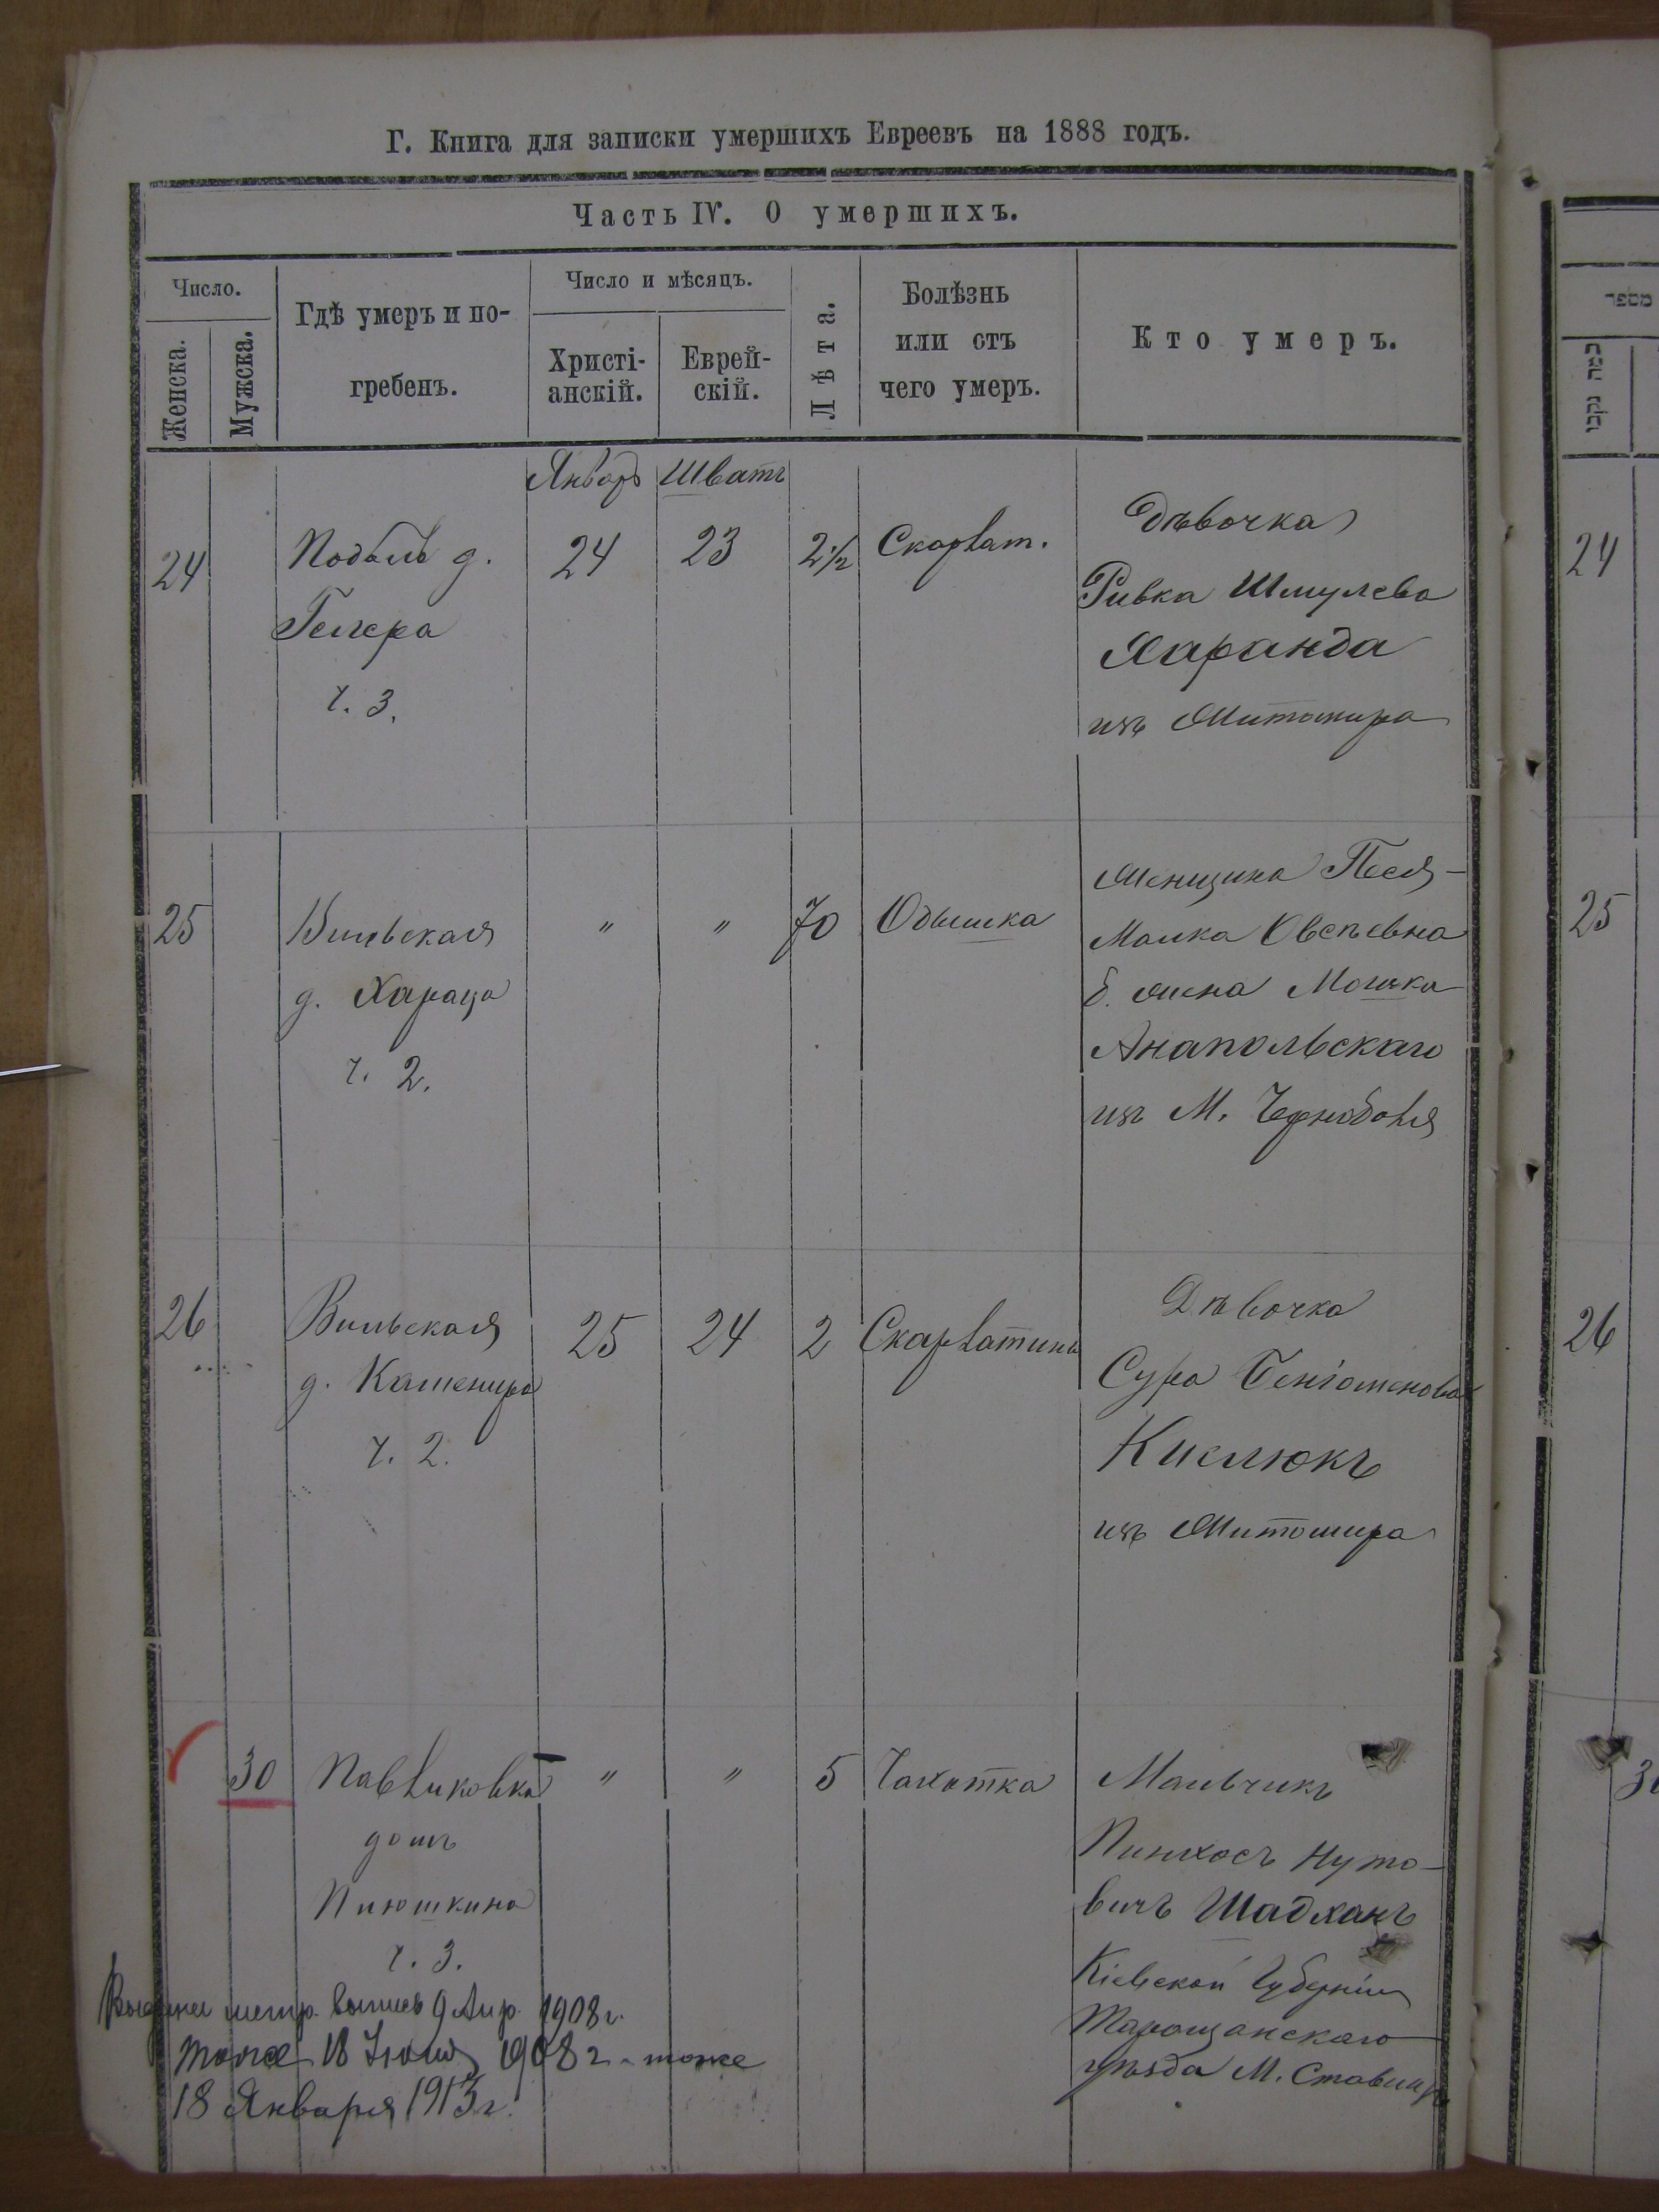 Г. Книга для записки умершихъ Евреевъ на 1888 годъ.
Часть IV. О умершихъ.
Число.
Женска.
Мужска.
Гдѣ умеръ и по-
гребенъ.
Число и мѣсяцъ.
Христі-
анскій.
Еврей-
скій.
Лѣта.
Болѣзнь
или отъ
чего умеръ.
Кто умеръ.
Январь Шватъ
24
Подоль д.
Гелера
ч. 3.
24
23
2 1/2
Скарлат.
Дѣвочка
Ривка Шмулева
Харанда
изъ Житомира
25
Вильская
д. Хараца
ч. 2.
"
"
70
Одышка
Женщина Песя-
Малка Овсѣевна
б. жена Мошка
Анапольскаго
изъ М. Черноболя
26
Вильская
д. Кашенира
ч. 2.
25
24
2
Скарлатина
Дѣвочка
Сура Беніоменова
Кислюкъ
изъ Житомира
30
Павликовка
домъ
Плюшкина
ч. 3.
"
"
5
Чахотка
Мальчикъ
Пинхосъ Нуто-
вичъ Шадханъ
Кіевской Губерніи
Таращанскаго
уѣзда М. Ставищъ
Выдана метр. выпись 9 Апр. 1908 г.
тоже 18 Іюля 1908 г. тоже
18 Января 1913 г.
מספר
נקבה
24
25
26